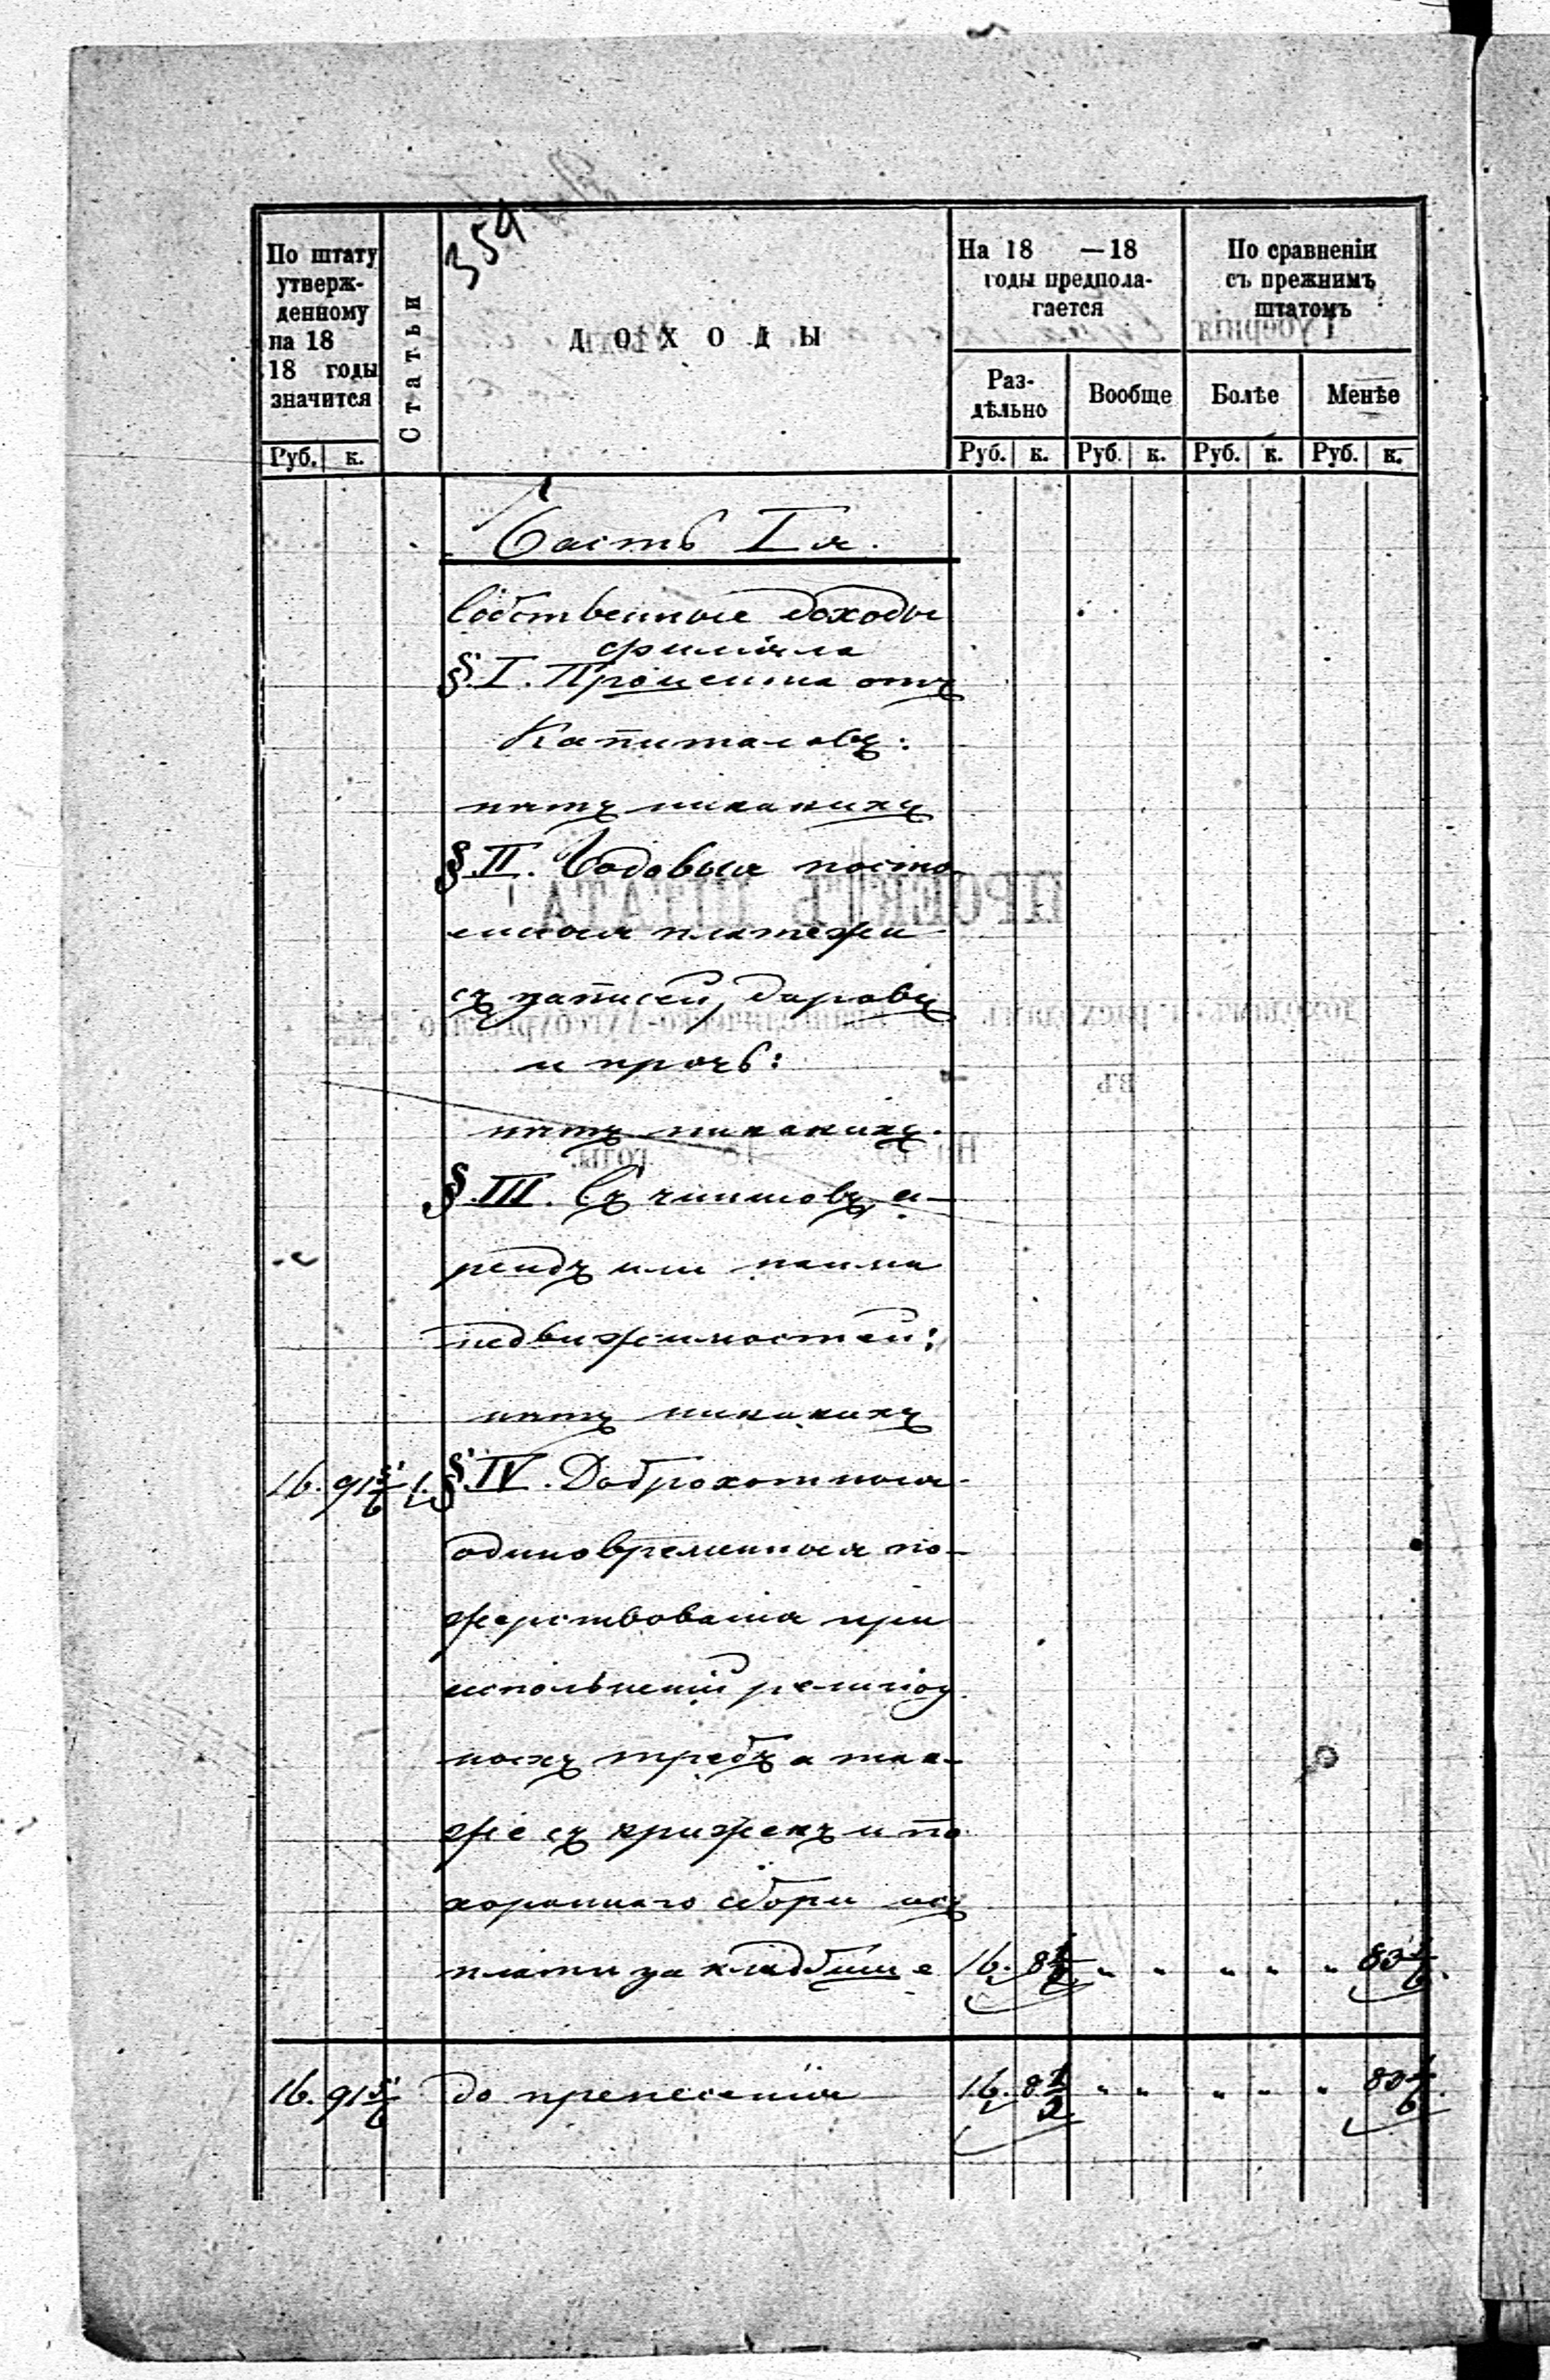 354
По штату
утверж-
денному
на 18
18 годы
значится
Статьи
ДОХОДЫ
На 18 —18
годы предпола-
гается
По сравненіи
съ прежнимъ
штатомъ
Раз-
дѣльно
Вообще
Болѣе
Менѣе
Руб. к.
Руб. к. Руб. к. Руб. к. Руб. к.
Часть I я.
Собственные доходы
филіяла
§. I. Процента отъ
Капиталовъ:
нѣтъ никакихъ
§. II. Годовыя посто-
енныя платежи
съ записей, даровъ
и прочь:
нѣтъ никакихъ.
§. III. Съ чиншовъ, а-
рендъ или наима
недвижимостей:
нѣтъ никакихъ
16. 91 5/6 1. §. IV. Доброхотныя
одиновременныя по-
жертвованія при
испольненіи религіоз
ныхъ требъ а так-
же съ крижекъ и по
хороннаго сбора
платы за кладбище 16. 8 „ „ „ „ „ 83
16. 91 5/6 до пренесенія 16. 8 1/2 „ „ „ „ „ 83